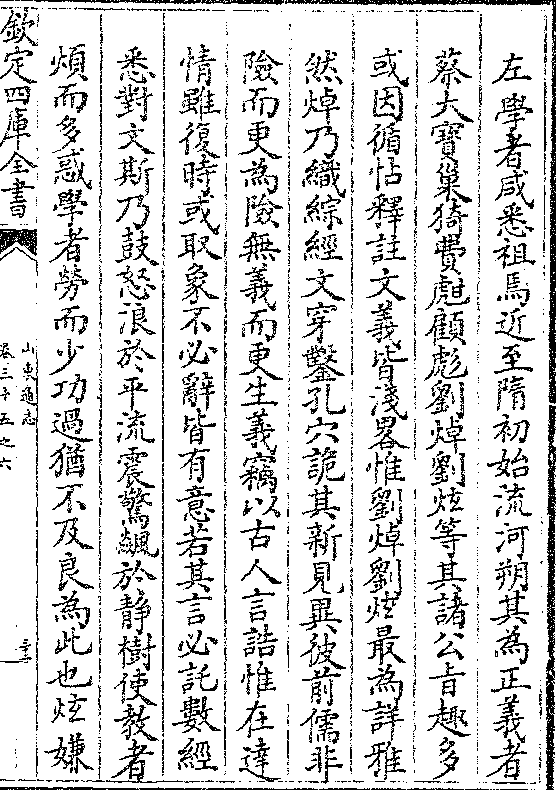 左學者咸悉祖馬近至隋初始流河朔其為正義者
蔡大寶巢猗費甝顧彪劉焯劉炫等其諸公旨趣多
或因循怗釋註文義皆淺畧惟劉焯劉炫最為詳雅
然焯乃織綜經文穿鑿孔穴詭其新見異彼前儒非
險而更為險無義而更生義竊以古人言誥惟在達
情雖復時或取象不必辭皆有意若其言必託數經
悉對文斯乃鼓怒浪於平流震驚飊於静樹使教者
煩而多惑學者勞而少功過猶不及良為此也炫嫌
欽定四庫全書
山東通志
卷三十五之六